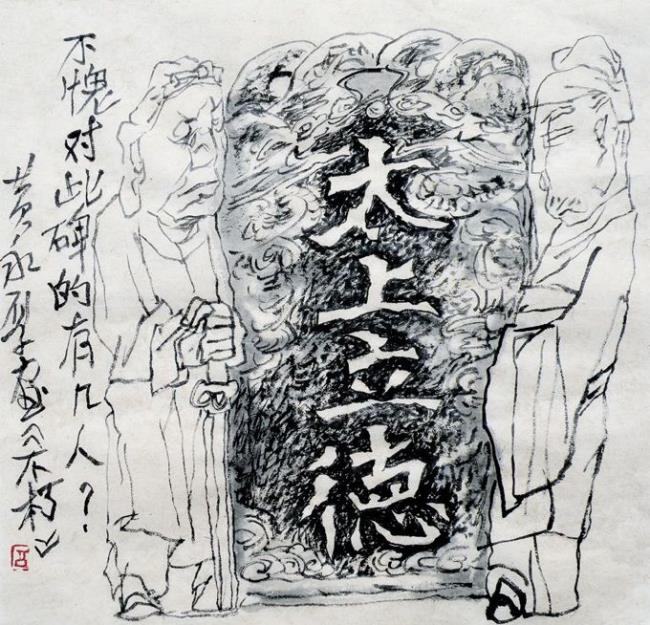 太上立德
不愧对此碑的有几人？
黄永厚画《不朽》